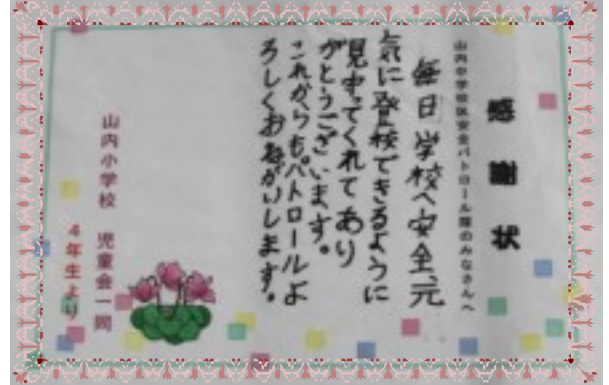 感謝状
山内中学校区安全パトロール隊のみなさんへ
毎日、学校へ安全、元
気に登校できるように
見守ってくれてあり
がとうございます。
これからもパトロールよ
ろしくおねがいします。
山内小学校 児童会一同
4年生より